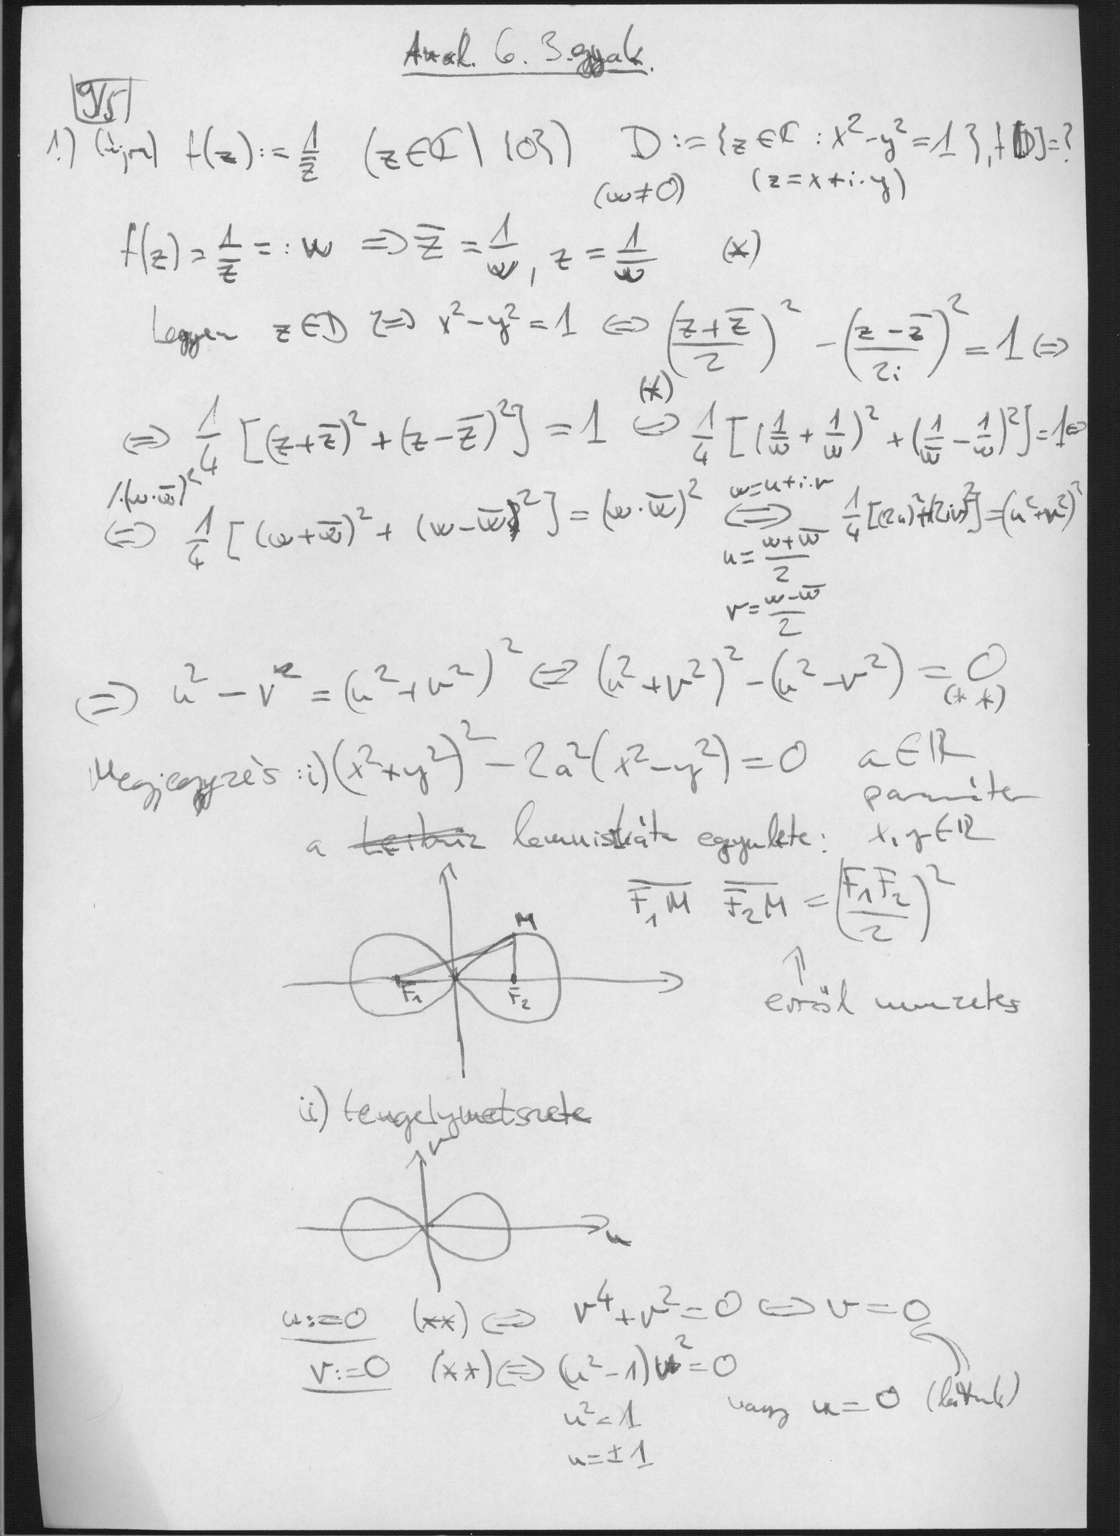 Anal. 6. 3. gyak.
9/5
1.) (újra) f(z) := 1/z̄ (z∈ℂ \ {0}) D := {z∈ℂ : x²-y²=1}, f[D]=?
(w≠0) (z=x+i·y)
f(z) = 1/z̄ =: w ⇒ z̄ = 1/w, z = 1/w̄ (*)
Legyen z∈D ⇔ x²-y²=1 ⇔ ((z+z̄)/2)² - ((z-z̄)/2i)² = 1 ⇔
⇔ 1/4 [(z+z̄)²+(z-z̄)²] = 1 (*) ⇔ 1/4 [(1/w̄ + 1/w)² + (1/w̄ - 1/w)²] = 1 ⇔
/·(w·w̄)² ⇔ 1/4 [(w+w̄)² + (w-w̄)²] = (w·w̄)² w=u+i·v ⇔ 1/4 [(2u)²+(2iv)²] = (u²+v²)²
u = (w+w̄)/2
v = (w-w̄)/2
⇔ u² - v² = (u²+v²)² ⇔ (u²+v²)² - (u²-v²) = 0 (**)
Megjegyzés: i) (x²+y²)² - 2a²(x²-y²) = 0 a∈ℝ
paraméter
a Leibniz lemniszkáta egyenlete: x,y∈ℝ
F₁M F₂M = (F₁F₂/2)²
M
F₁ F₂
erről nevezetes
ii) tengelymetszete
v
u
u:=0 (**) ⇔ v⁴+v²=0 ⇔ v=0
v:=0 (**) ⇔ (u²-1)u²=0
u²=1 vagy u=0 (láttuk)
u=±1